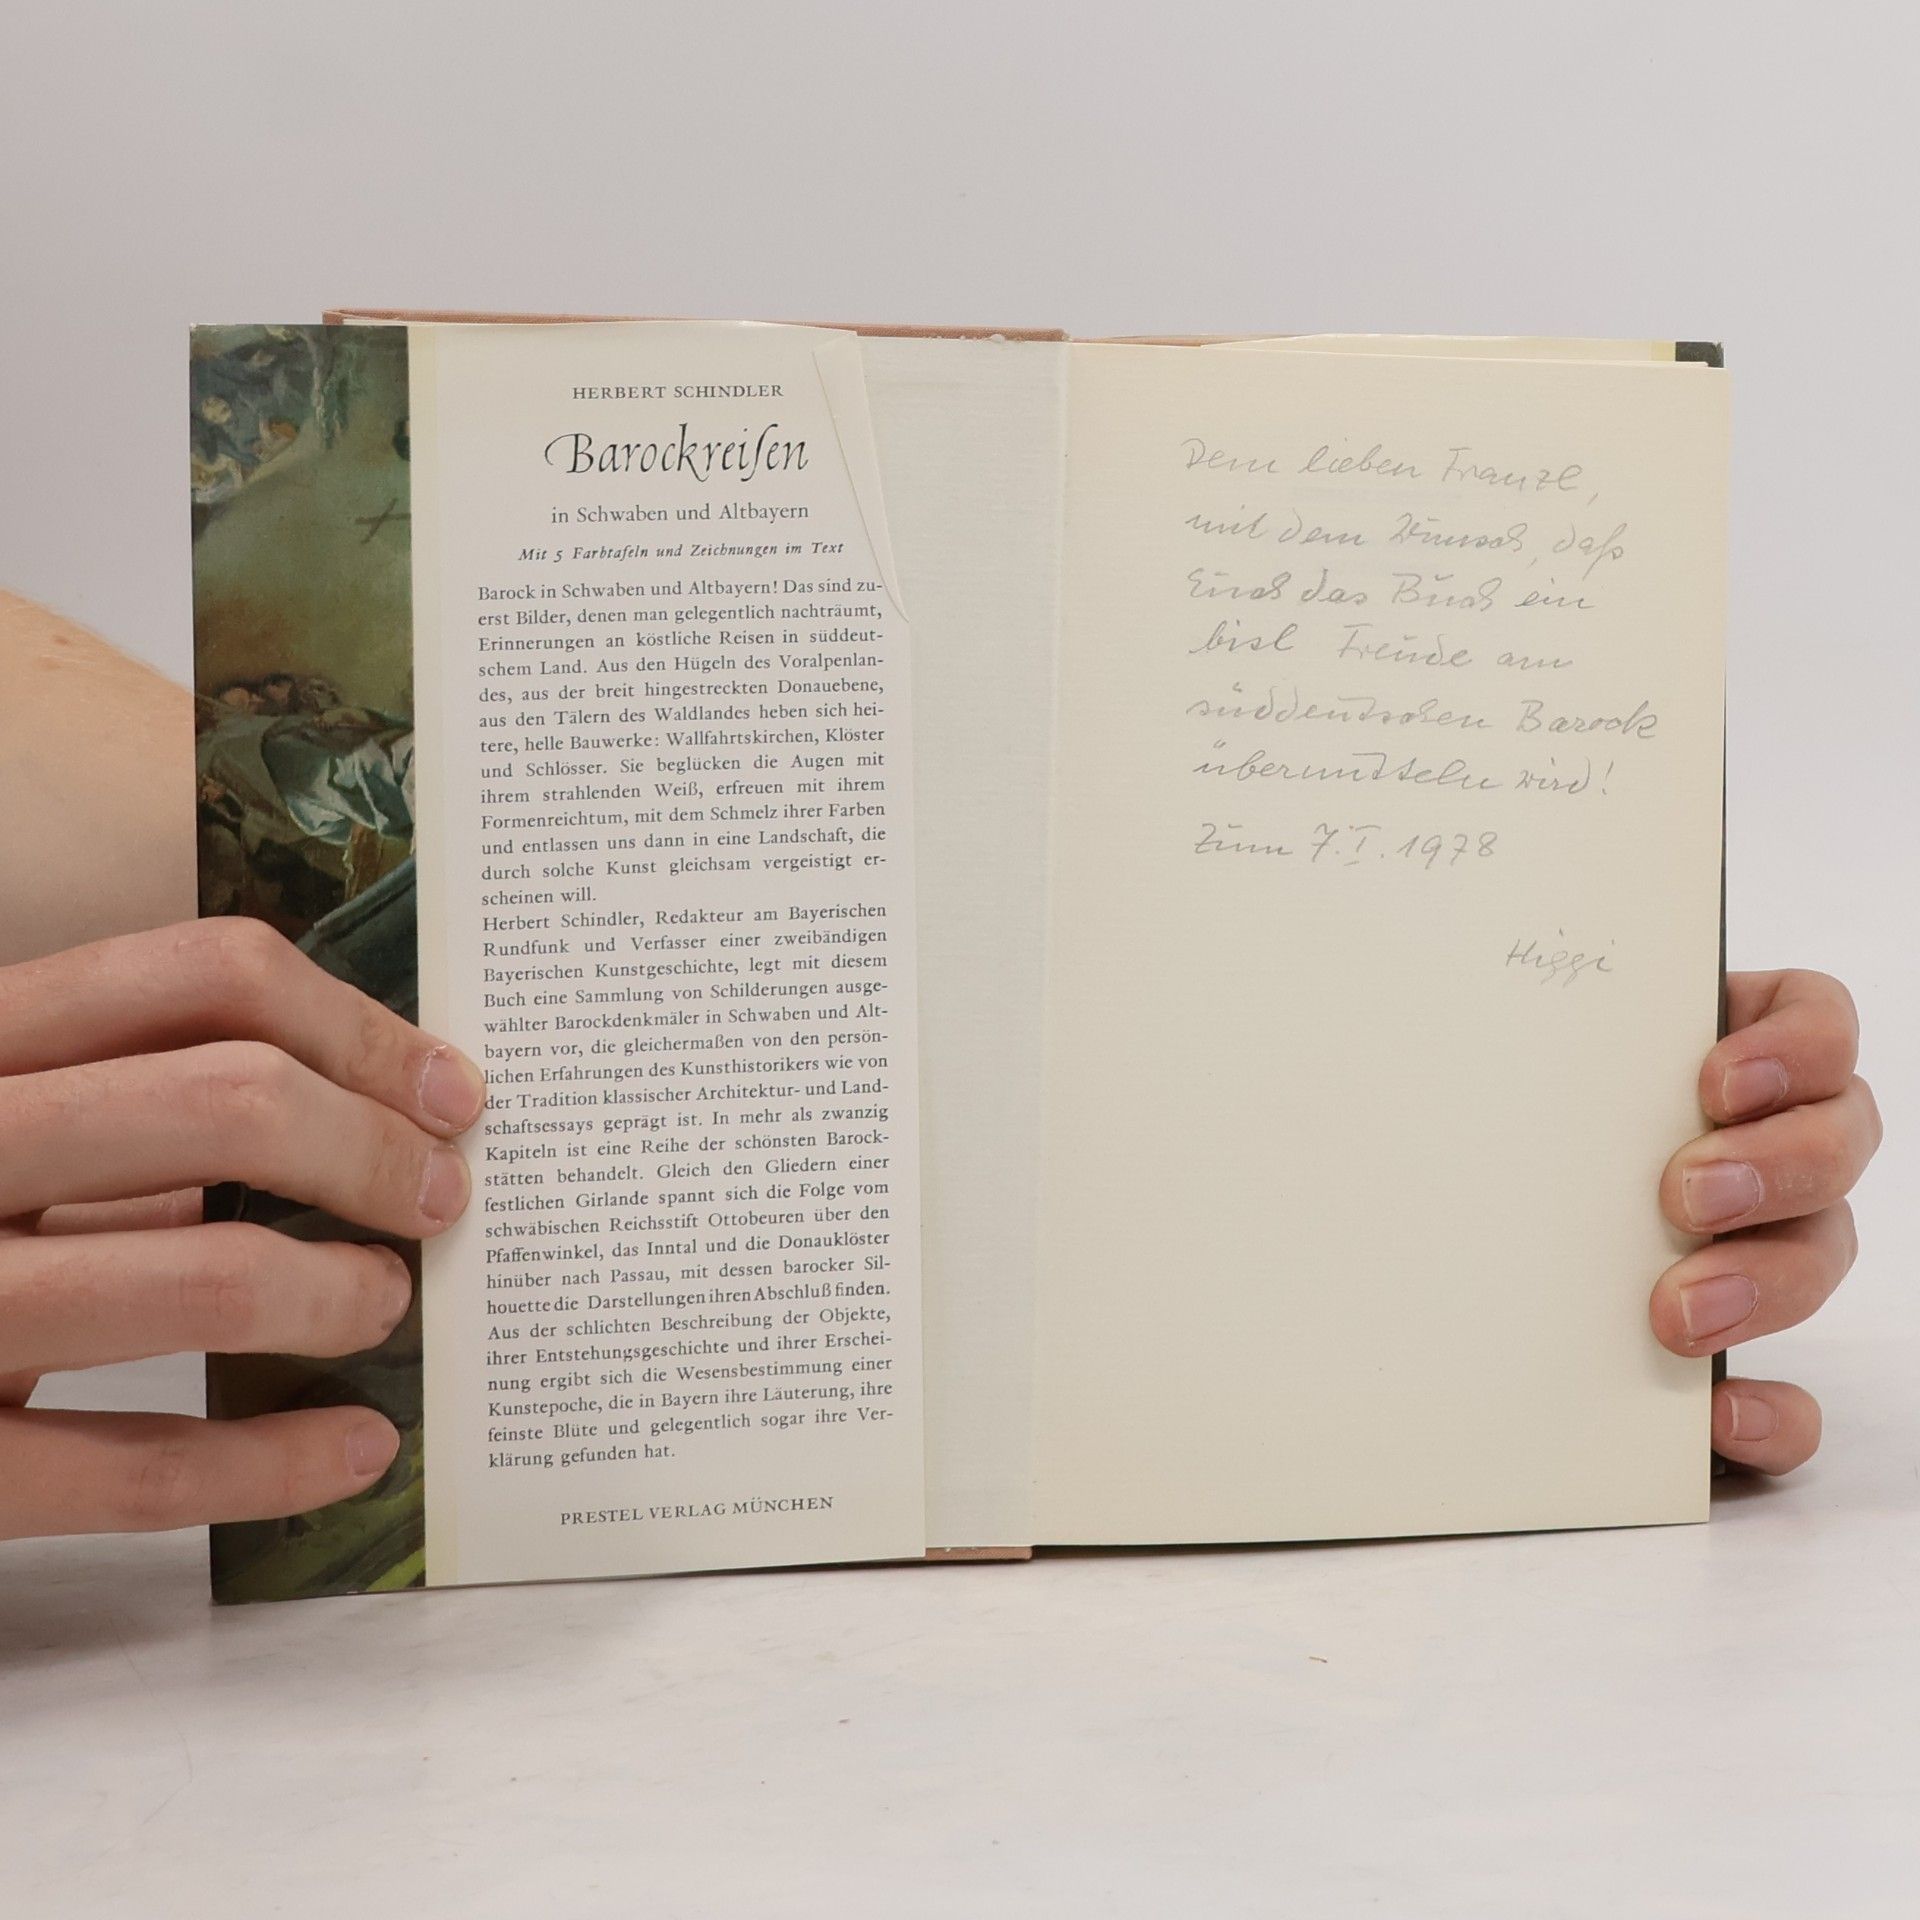 HERBERT SCHINDLER
Barockreiſen
in Schwaben und Altbayern
Mit 5 Farbtafeln und Zeichnungen im Text
Barock in Schwaben und Altbayern! Das sind zu-
erst Bilder, denen man gelegentlich nachträumt,
Erinnerungen an köstliche Reisen in süddeut-
schem Land. Aus den Hügeln des Voralpenlan-
des, aus der breit hingestreckten Donauebene,
aus den Tälern des Waldlandes heben sich hei-
tere, helle Bauwerke: Wallfahrtskirchen, Klöster
und Schlösser. Sie beglücken die Augen mit
ihrem strahlenden Weiß, erfreuen mit ihrem
Formenreichtum, mit dem Schmelz ihrer Farben
und entlassen uns dann in eine Landschaft, die
durch solche Kunst gleichsam vergeistigt er-
scheinen will.
Herbert Schindler, Redakteur am Bayerischen
Rundfunk und Verfasser einer zweibändigen
Bayerischen Kunstgeschichte, legt mit diesem
Buch eine Sammlung von Schilderungen ausge-
wählter Barockdenkmäler in Schwaben und Alt-
bayern vor, die gleichermaßen von den persön-
lichen Erfahrungen des Kunsthistorikers wie von
der Tradition klassischer Architektur- und Land-
schaftsessays geprägt ist. In mehr als zwanzig
Kapiteln ist eine Reihe der schönsten Barock-
stätten behandelt. Gleich den Gliedern einer
festlichen Girlande spannt sich die Folge vom
schwäbischen Reichsstift Ottobeuren über den
Pfaffenwinkel, das Inntal und die Donauklöster
hinüber nach Passau, mit dessen barocker Sil-
houette die Darstellungen ihren Abschluß finden.
Aus der schlichten Beschreibung der Objekte,
ihrer Entstehungsgeschichte und ihrer Erschei-
nung ergibt sich die Wesensbestimmung einer
Kunstepoche, die in Bayern ihre Läuterung, ihre
feinste Blüte und gelegentlich sogar ihre Ver-
klärung gefunden hat.
PRESTEL VERLAG MÜNCHEN
Dem lieben Franzl,
mit dem Wunsch, daß
Euch das Buch ein
bisl Freude am
süddeutschen Barock
übermitteln wird!
Zum 7. I. 1978
Higgi